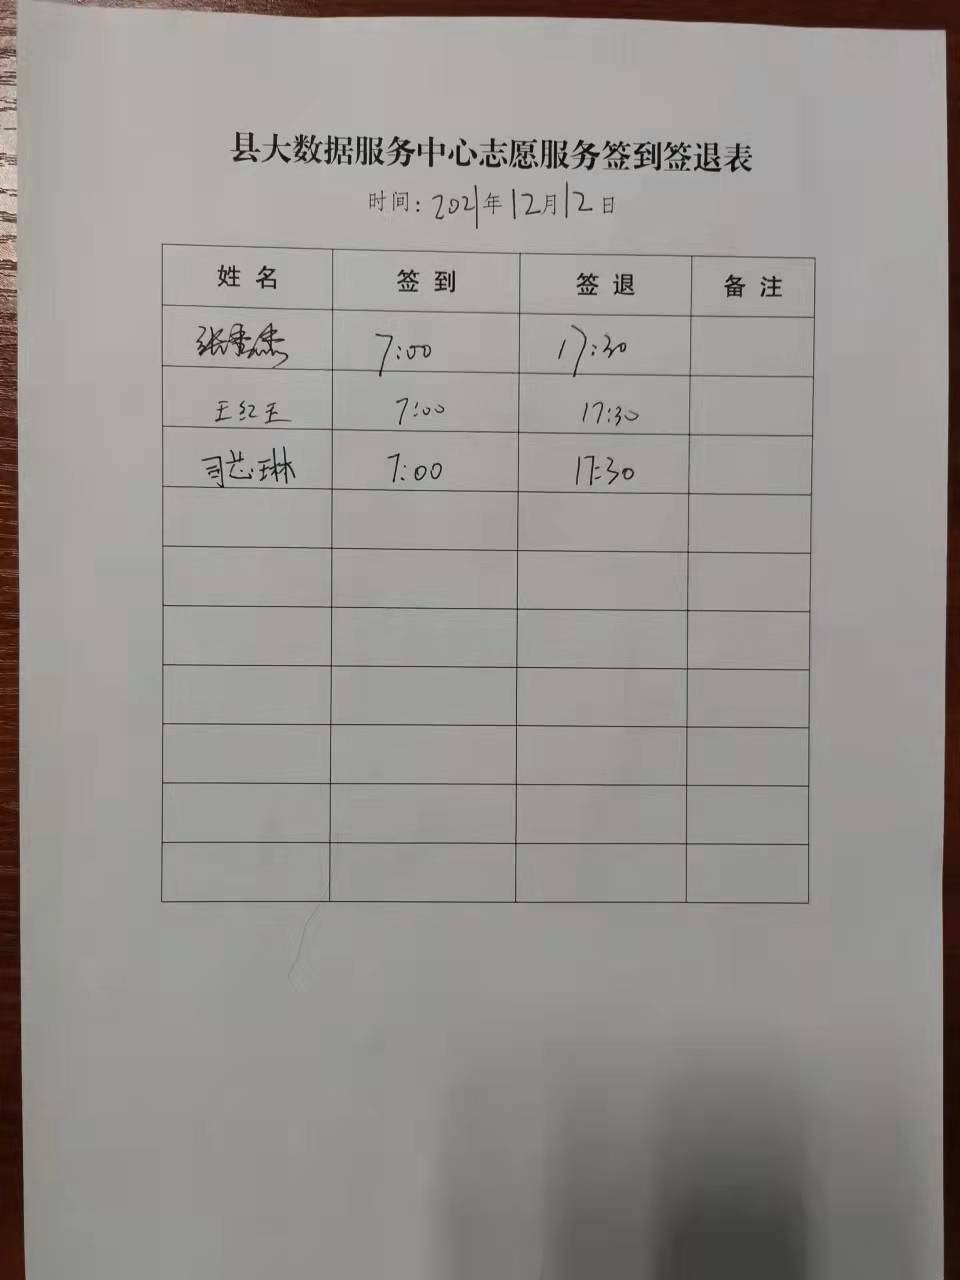 县大数据服务中心志愿服务签到签退表
时间: 2021年12月12日
姓 名 签 到 签 退 备 注
张 7:00 17:30
王红王 7:00 17:30
司芯琳 7:00 17:30